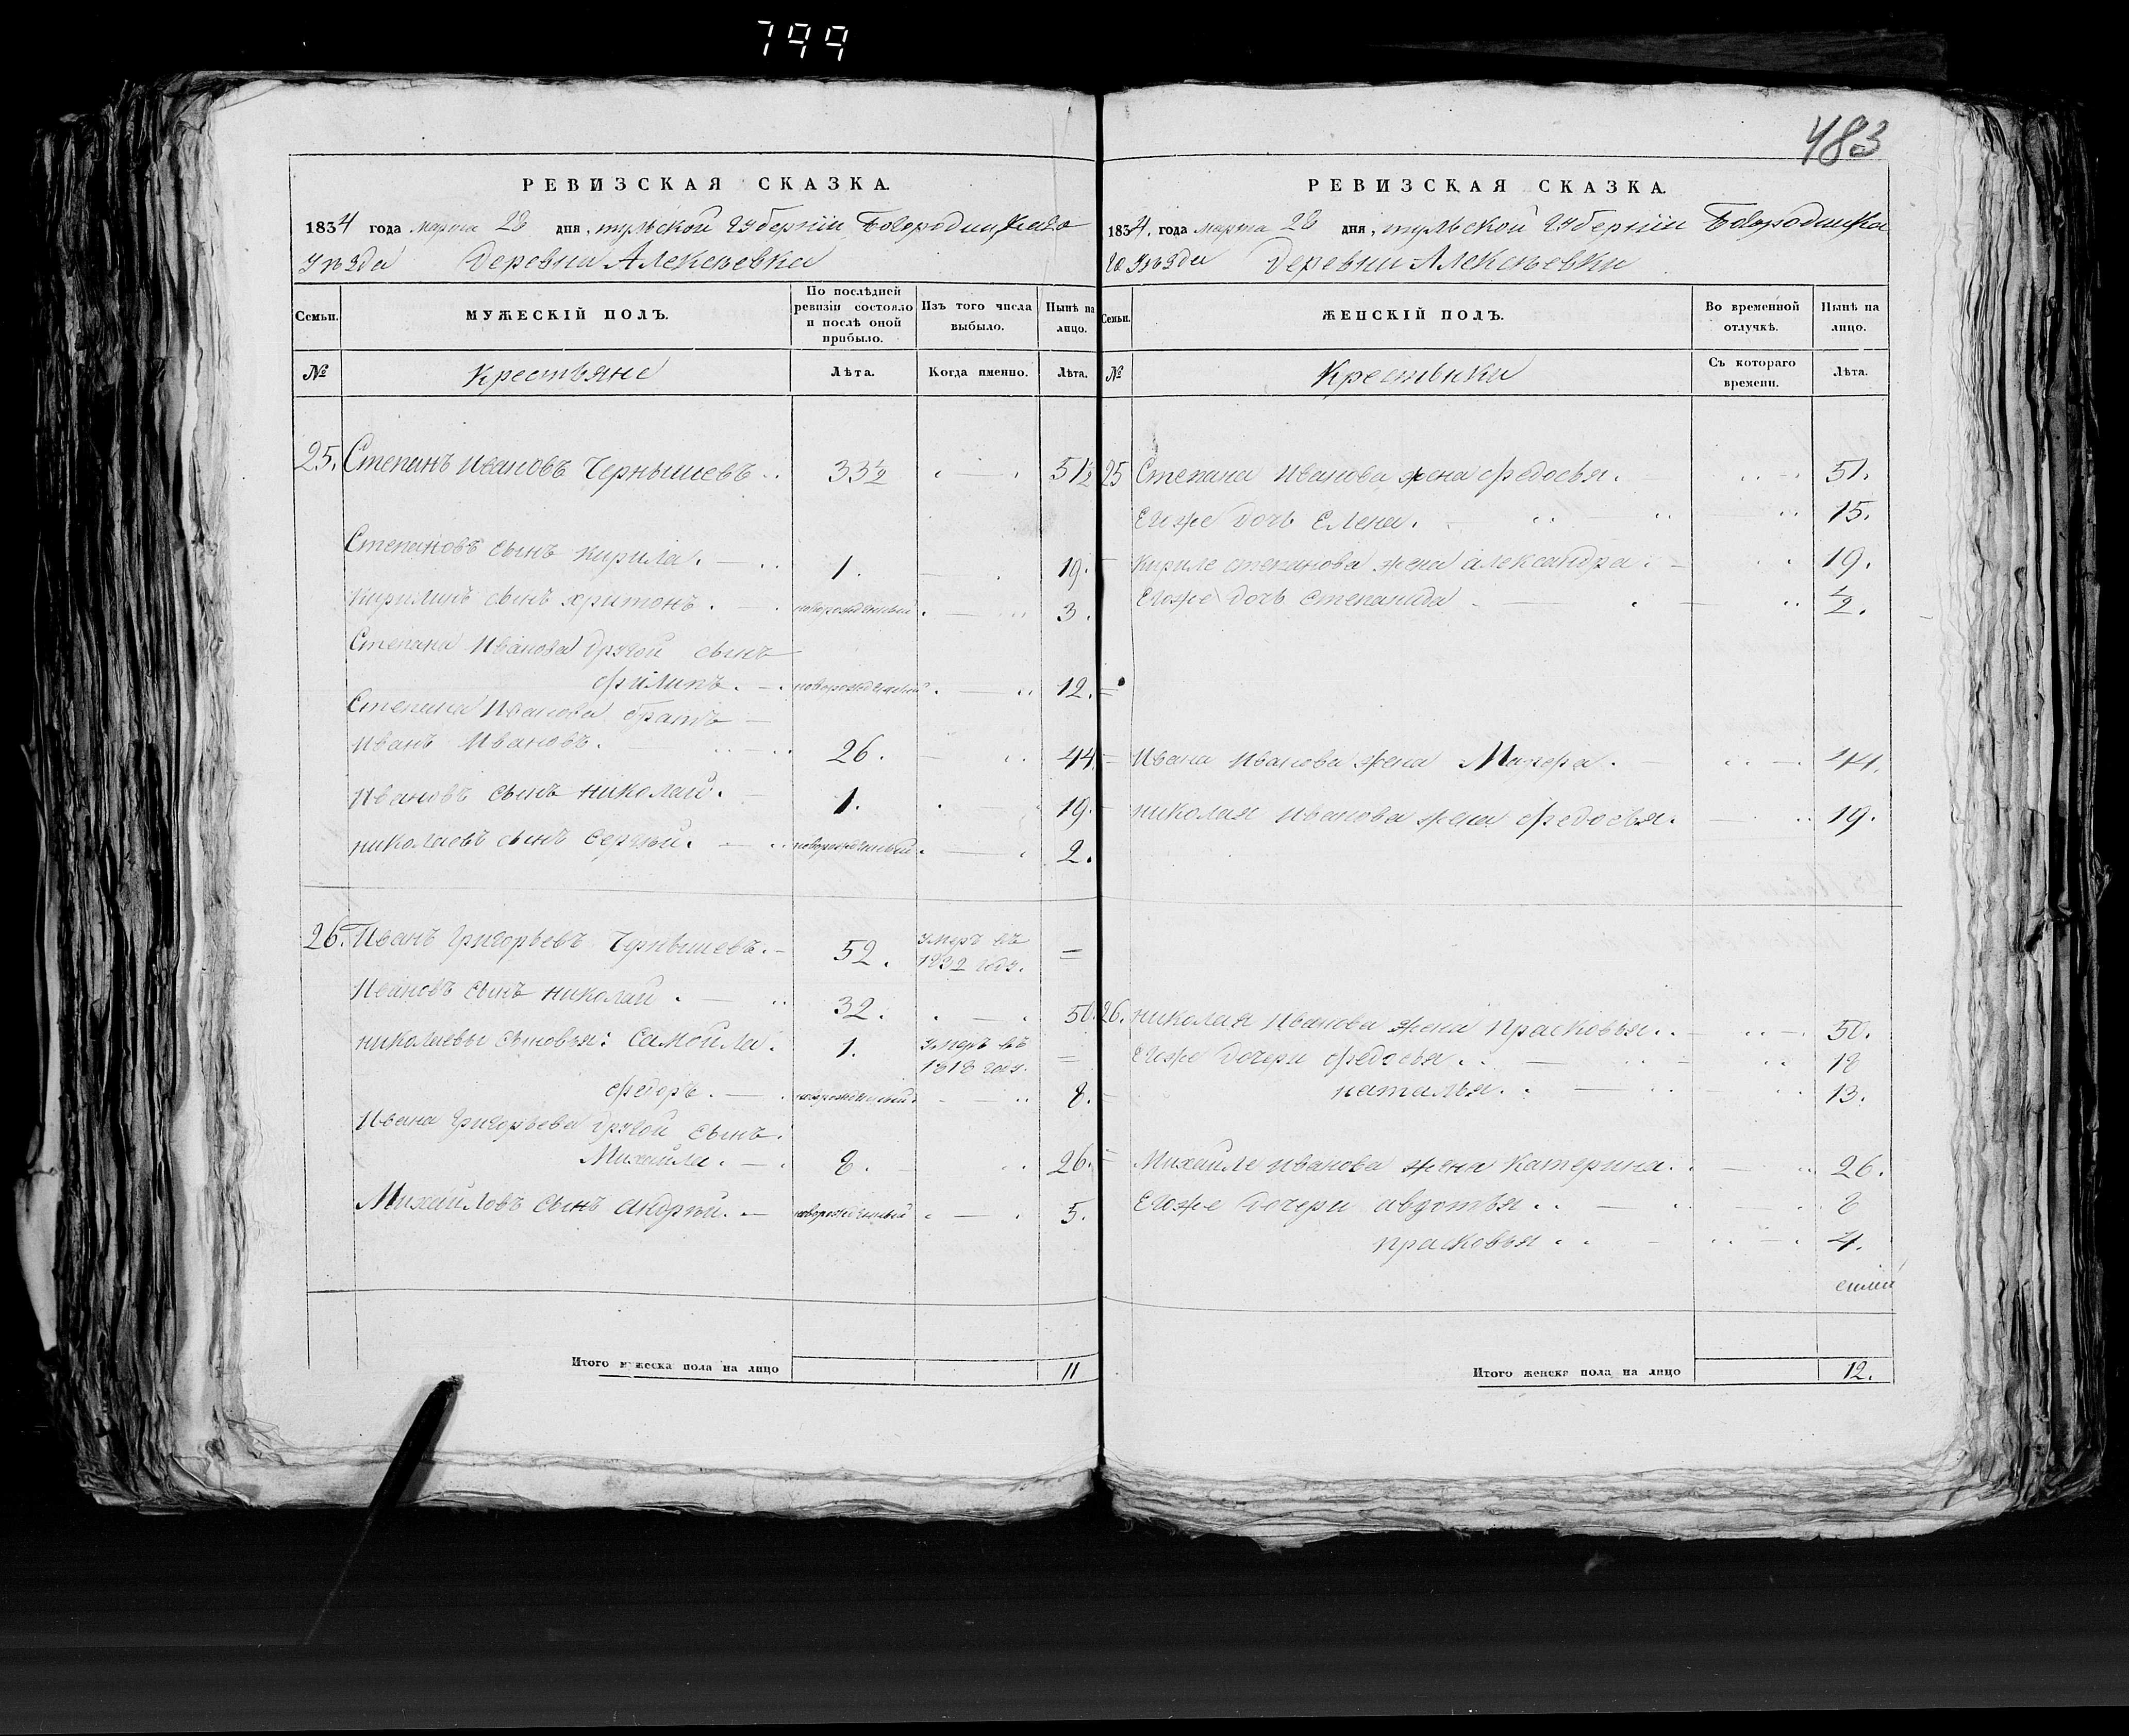 799
483
РЕВИЗСКАЯ СКАЗКА.
1834 года марта 28 дня, тульской губерніи Богородицкаго
уѣзда деревни Алексѣевки
Семьи.
МУЖЕСКІЙ ПОЛЪ.
По послѣдней ревизіи состояло и послѣ оной прибыло.
Изъ того числа выбыло.
Нынѣ на лицо.
№
Крестьяне
Лѣта.
Когда именно.
Лѣта.
25. Степанъ Ивановъ Чернышевъ 33½ 51½
Степановъ сынъ Кирила. 1. 19.
Кирилинъ сынъ Харитонъ. новорожденный 3.
Степана Иванова другой сынъ
Филипъ. новорожденный 12.
Степана Иванова братъ
Иванъ Ивановъ. 26. 44.
Ивановъ сынъ николай. 1. 19.
николаевъ сынъ Сергѣй. новорожденный 2.
26. Иванъ Григорьевъ Чернышевъ. 52. умеръ въ 1832 году. =
Ивановъ сынъ николай. 32. 50.
николаевы сыновья: Самойла. 1. умеръ въ 1818 году. =
Федоръ. новорожденный 8.
Ивана Григорьева другой сынъ.
Михайла. 8. 26.
Михайловъ сынъ андрѣй. новорожденный 5.
Итого мужеска пола на лицо 11
РЕВИЗСКАЯ СКАЗКА.
1834. года марта 28 дня, тульской губерніи Богородицка
го уѣзда деревни Алексѣевки
Семьи.
ЖЕНСКІЙ ПОЛЪ.
Во временной отлучкѣ.
Нынѣ на лицо.
№
Крестьнки
Съ котораго времени.
Лѣта.
25 Степана Иванова жена Федосья. 51.
Егоже дочь Елена. 15.
Кириле степанова жена александра. 19.
Егоже дочь степанида ½.
Ивана Иванова жена Матрфа. 44.
николая иванова жена Федосья. 19.
26. николая Иванова жена Прасковья. 50.
Егоже дочери Федосья. 18
наталья. 13.
Михайле иванова жена Катерина. 26.
Егоже дочери авдотья 8
прасковья 4.
Итого женска пола на лицо 12.